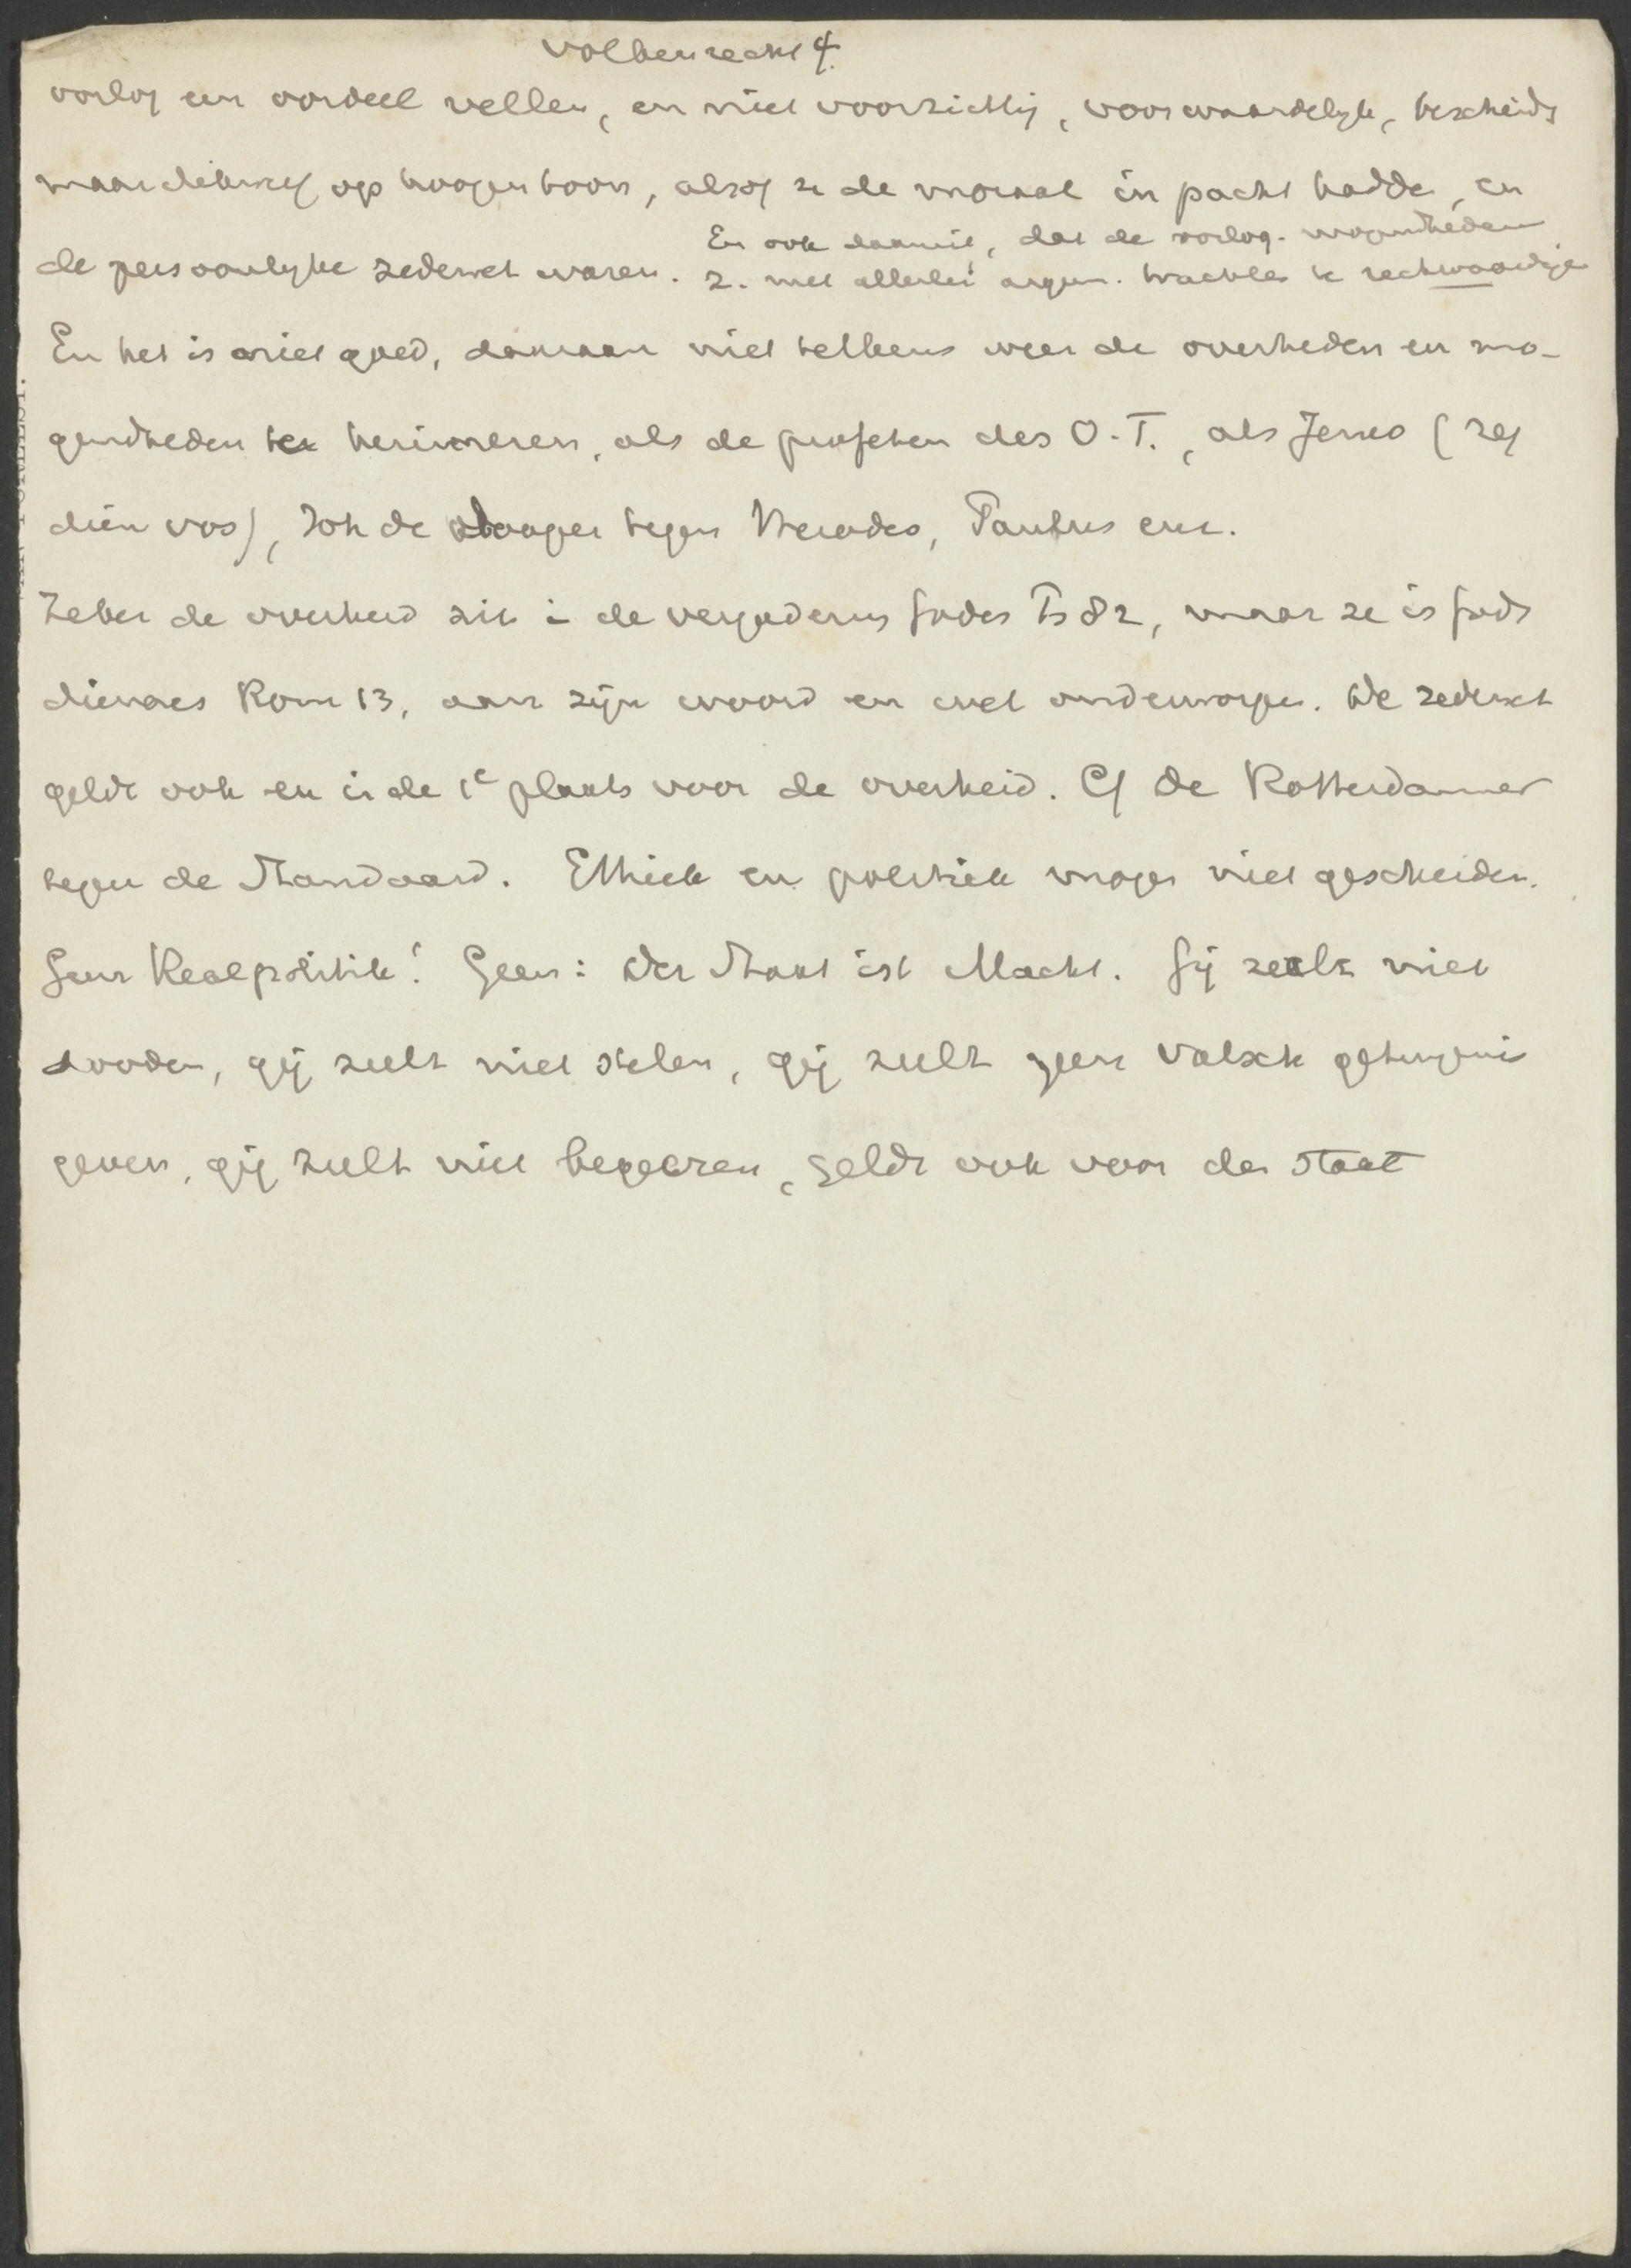 Volkenrecht 4.
oorlog een oordeel vellen, en niet voorzichtig, voorwaardelijk, bescheiden
maar dikwijls op hoogen toon, alsof ze de moraal in pacht hadden, en
En ook daaruit, dat de oorlog. mogendheden
de persoonlijke zedewet waren. z. met allerlei argum. trachten te rechtvaardigen
En het is niet goed, daaraan niet telkens weer de overheden en mo-
gendheden te herinneren, als de profeten des O.T., als Jezus (zeg
dien vos), Joh de dooper tegen Herodes, Paulus enz.
Zeker de overheid zit in de vergadering Gods Ps 82, maar ze is Gods
dienares Rom 13, aan zijn woord en wet onderworpen. De zedewet
geldt ook en in de 1e plaats voor de overheid. Cf De Rotterdammer
tegen de Standaard. Ethiek en politiek mogen niet gescheiden.
Geen Realpolitik! Geen: Der Staat ist Macht. Gij zult niet
dooden, gij zult niet stelen, gij zult geen valsch getuigenis
geven, gij zult niet begeeren, geldt ook voor den staat